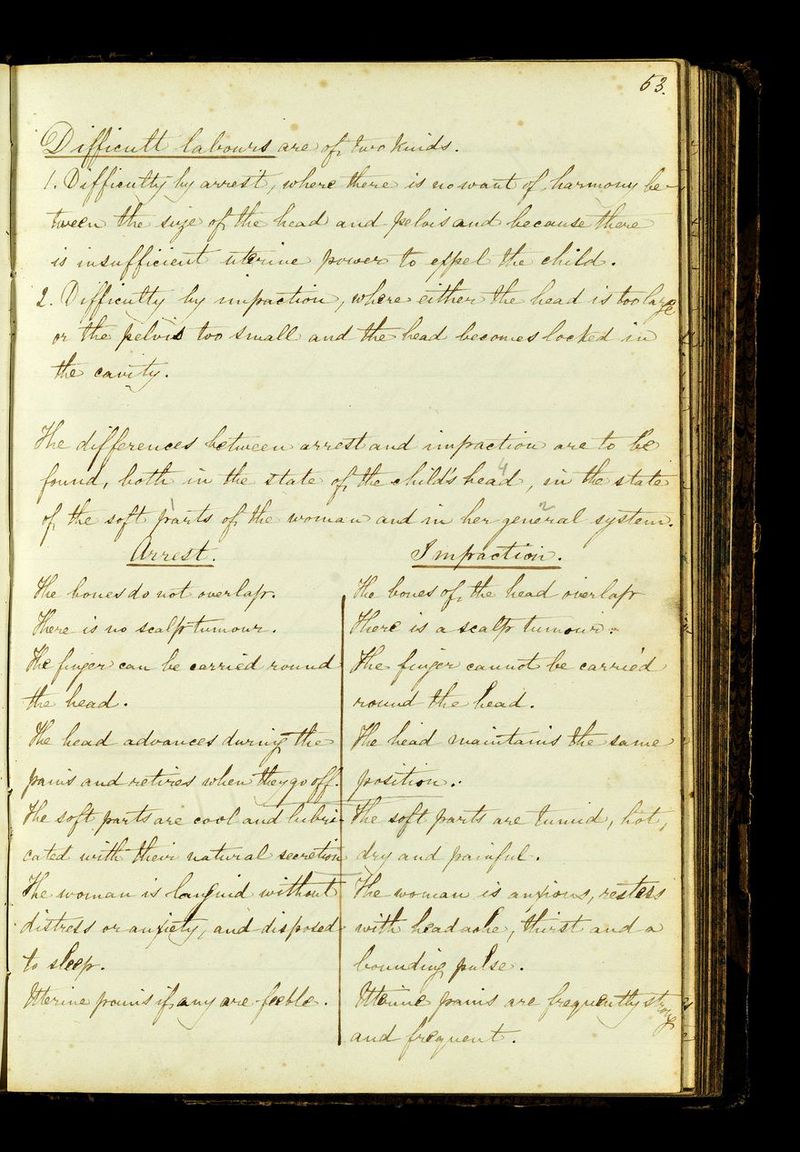 53.
Difficult labours are of two kinds.
1. Difficulty by arrest, where there is no want of harmony be-
tween the size of the head and pelvis and because there
is insufficient uterine power to expel the child.
2. Difficulty by impaction, where either the head is too large
or the pelvis too small and the head becomes locked in
the cavity.
The differences between arrest and impaction are to be
found, both in the state of the child's head, in the state
of the soft parts of the woman and in her general system.
Arrest.
The bones do not overlap.
There is no scalp tumour.
The finger can be carried round
the head.
The head advances during the
pains and retires when they go off.
The soft parts are cool and lubri-
cated with their natural secretion
The woman is languid without
distress or anxiety, and disposed
to sleep.
Uterine pains if any are feeble.
Impaction.
The bones of the head overlap
There is a scalp tumour.
The finger cannot be carried
round the head.
The head maintains the same
position.
The soft parts are tumid, hot,
dry and painful.
The woman is anxious, restless
with headache, thirst and a
bounding pulse.
Uterine pains are frequently strong
and frequent.